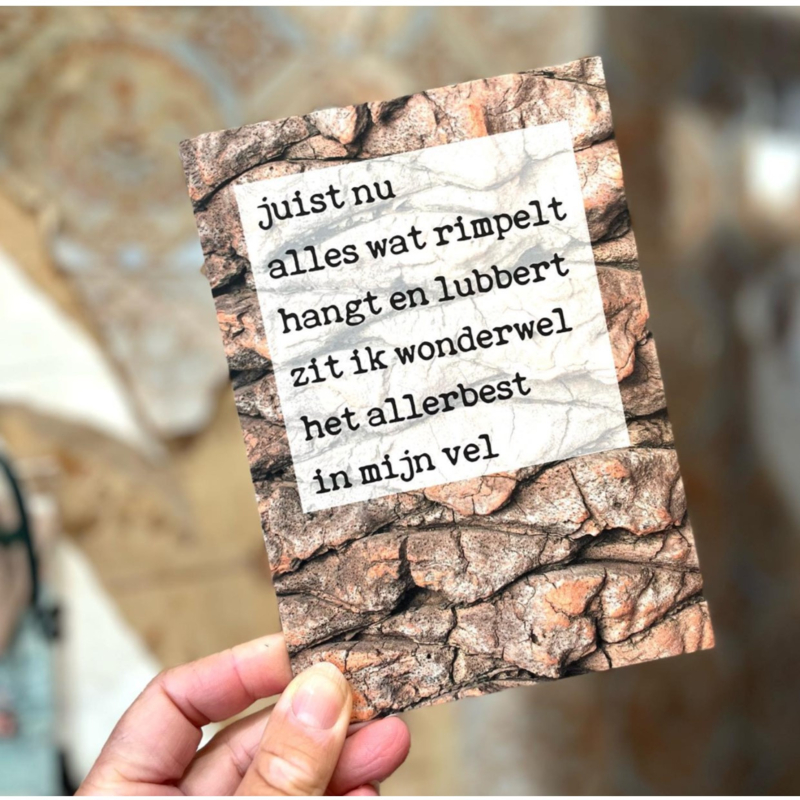 juist nu
alles wat rimpelt
hangt en lubbert
zit ik wonderwel
het allerbest
in mijn vel